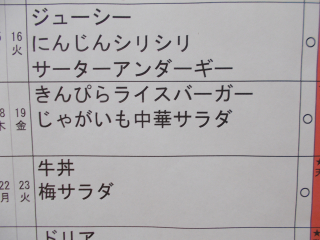 ジューシー
16 にんじんシリシリ ○
火 サーターアンダーギー
きんぴらライスバーガー
8 19 じゃがいも中華サラダ ○
木 金
牛丼
22 23 梅サラダ ○
月 火
ドリア